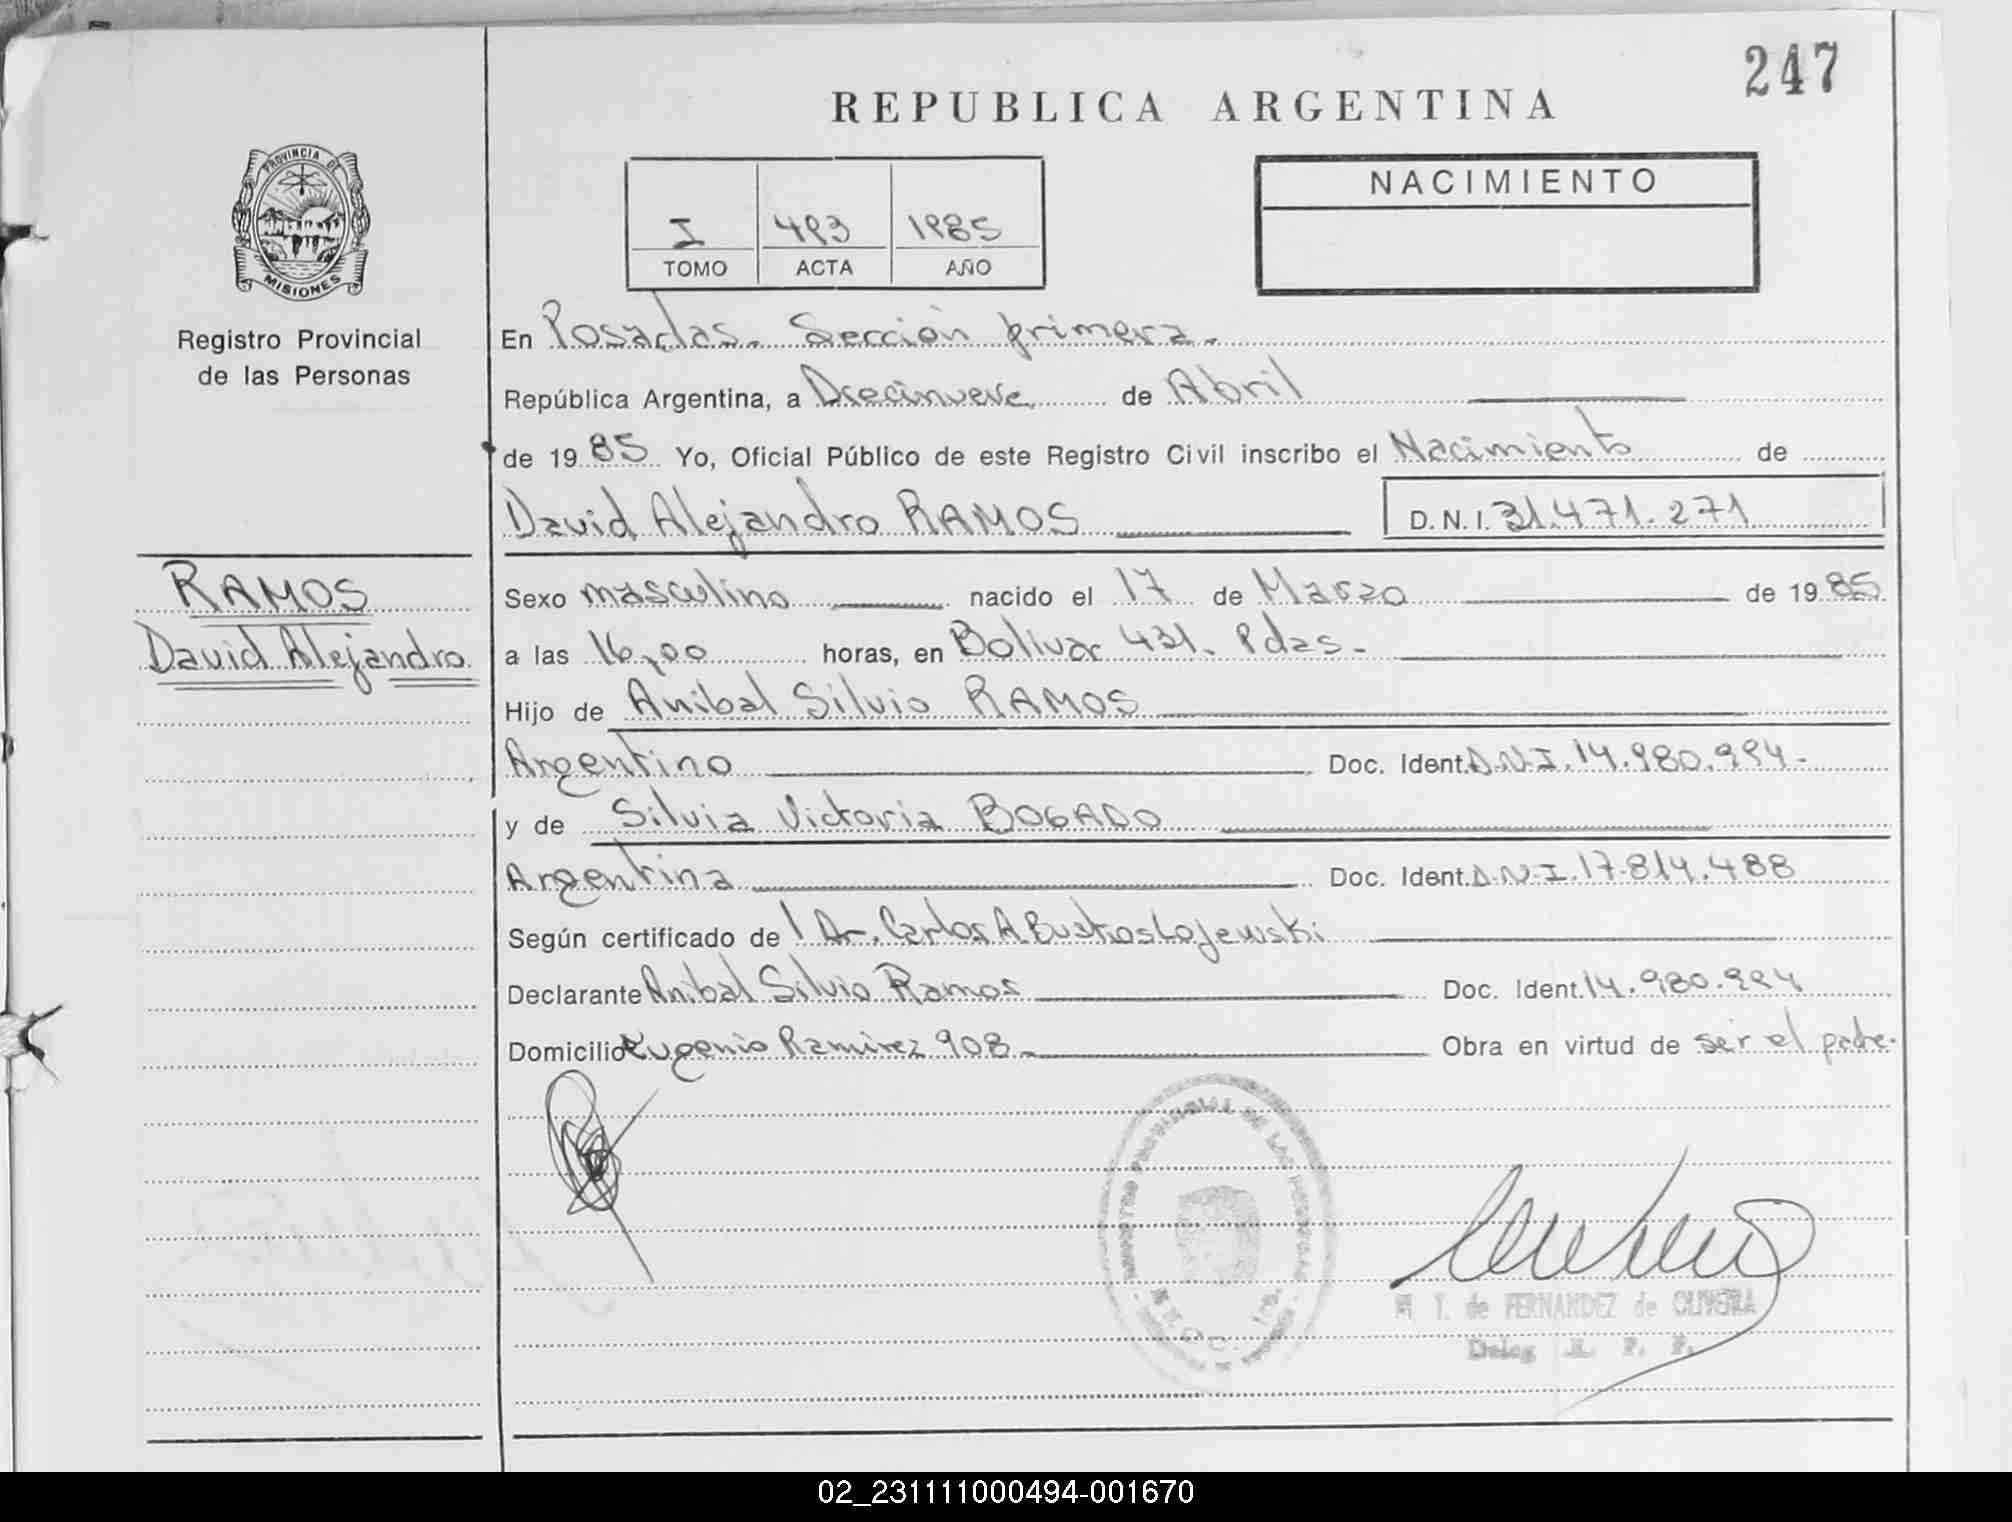 247
REPUBLICA ARGENTINA
PROVINCIA DE
MISIONES
Registro Provincial
de las Personas
I 493 1985
TOMO ACTA AÑO
NACIMIENTO
En Posadas. Sección primera.
República Argentina, a Diecinueve de Abril
de 1985 Yo, Oficial Público de este Registro Civil inscribo el Nacimiento de
David Alejandro RAMOS D.N.I. 31.471.271
RAMOS
David Alejandro
Sexo masculino nacido el 17 de Marzo de 1985
a las 16,00 horas, en Bolivar 431. Pdas.
Hijo de Anibal Silvio RAMOS
Argentino Doc. Ident. D.N.I. 14.980.994.
y de Silvia Victoria BOGADO
Argentina Doc. Ident. D.N.I. 17.814.488
Según certificado de Dr. Carlos A Bustos Lojewski
Declarante Anibal Silvio Ramos Doc. Ident. 14.980.994
Domicilio Eugenio Ramirez 908. Obra en virtud de ser el padre.
T. de FERNANDEZ de OLIVEIRA
Deleg. R. P. P.
02_231111000494-001670